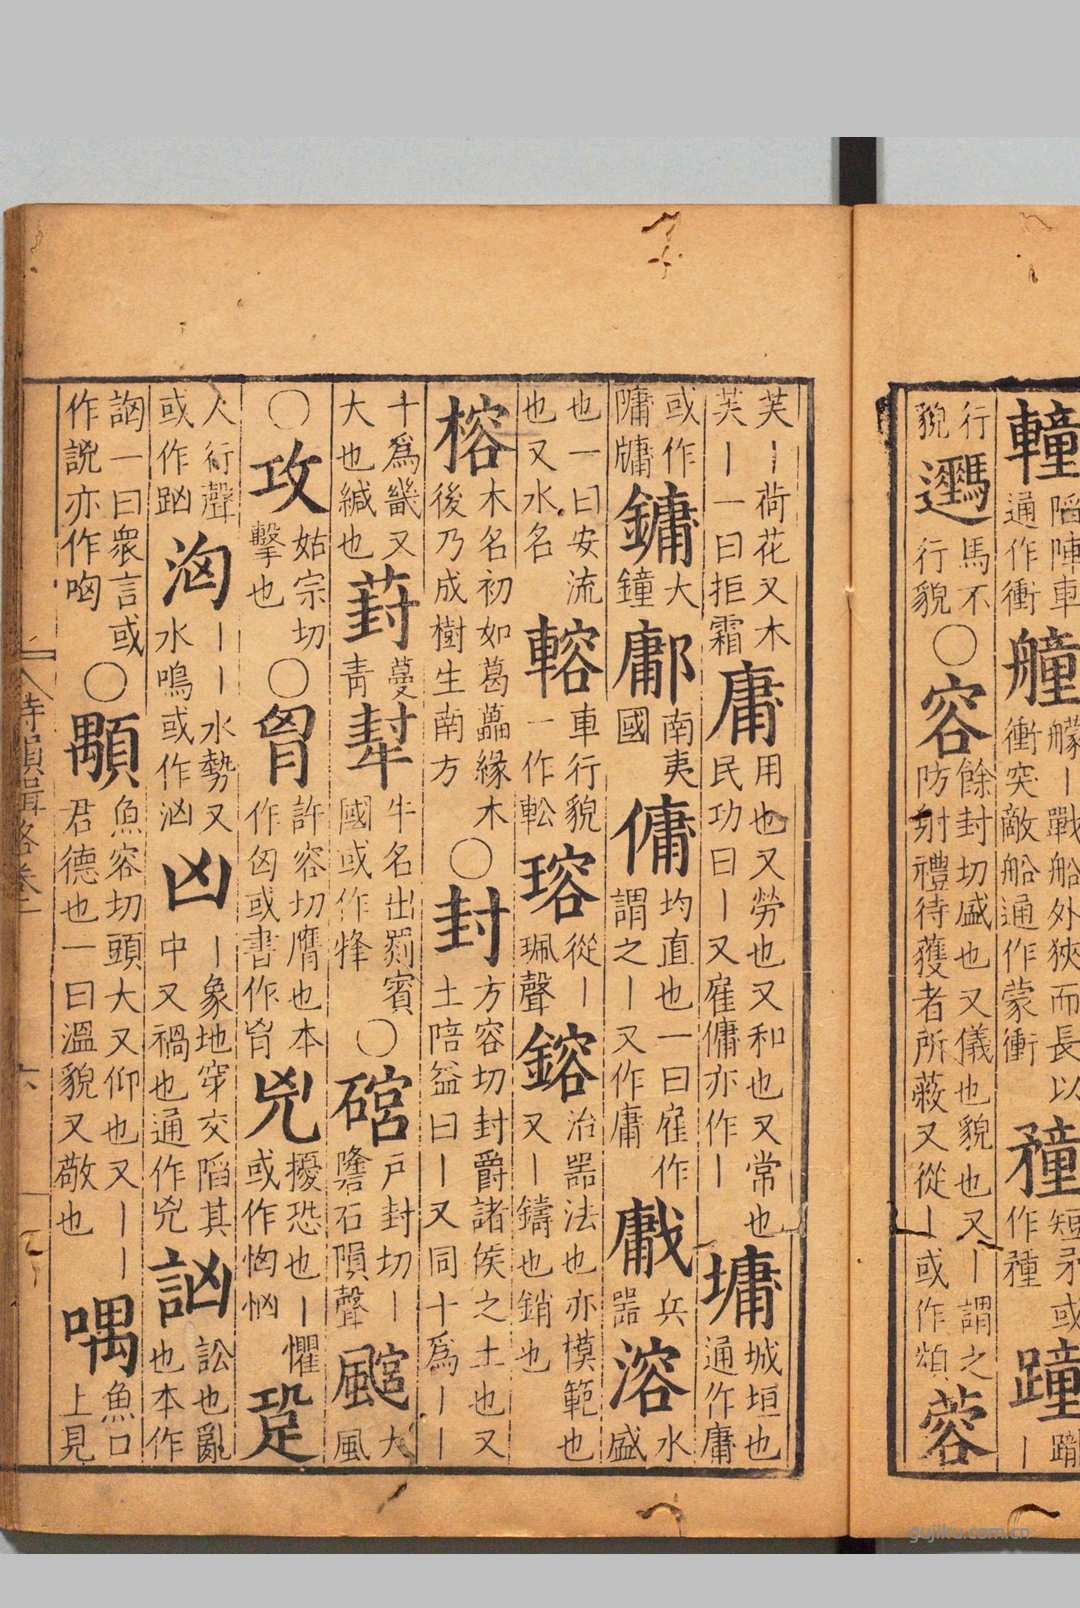 轒陷陣車
通作衝艟艨丨戰船外狹而長以
衝突敵船通作蒙衝𥎞短矛或
作種蹱蹋
丨
行
貌𨙦馬不
行貌〇容餘封切盛也又儀也貌也又丨謂之
防射禮待獲者所蔽又從丨或作頌蓉
芙丨荷花又木
芙丨一曰拒霜庸用也又勞也又和也又常也
民功曰丨又雇傭亦作丨墉城垣也
通作庸
或作
隭牗鏞大
鐘鄘南夷
國傭均直也一曰雇作
謂之丨又作庸𢧳兵
器溶水
盛
也一曰安流
也又水名䡥車行貌
一作䡆瑢從丨
珮聲鎔冶器法也亦模範也
又丨鑄也銷也
榕木名初如葛藟緣木
後乃成樹生南方〇封方容切封爵諸侯之土也又
土培益曰丨又同十爲丨
十爲畿又
大也緘也葑蔓
青犎牛名出罽賓
國或作犎〇硿戶封切丨
隆石隕聲颹大
風
〇攻姑宗切
擊也〇胷許容切膺也本
作匈或書作胷兇擾恐也丨懼
或作恟㤑跫
人行聲
或作跫洶丨丨水勢又
水鳴或作汹凶丨象地穿交陷其
中又禍也通作兇訩訟也亂
也本作
詾一曰衆言或
作説亦作哅〇顒魚容切頭大又仰也又丨丨
君德也一曰溫貌又敬也喁魚口
上見
詩韻輯略卷一
六
gujiku.com.cn